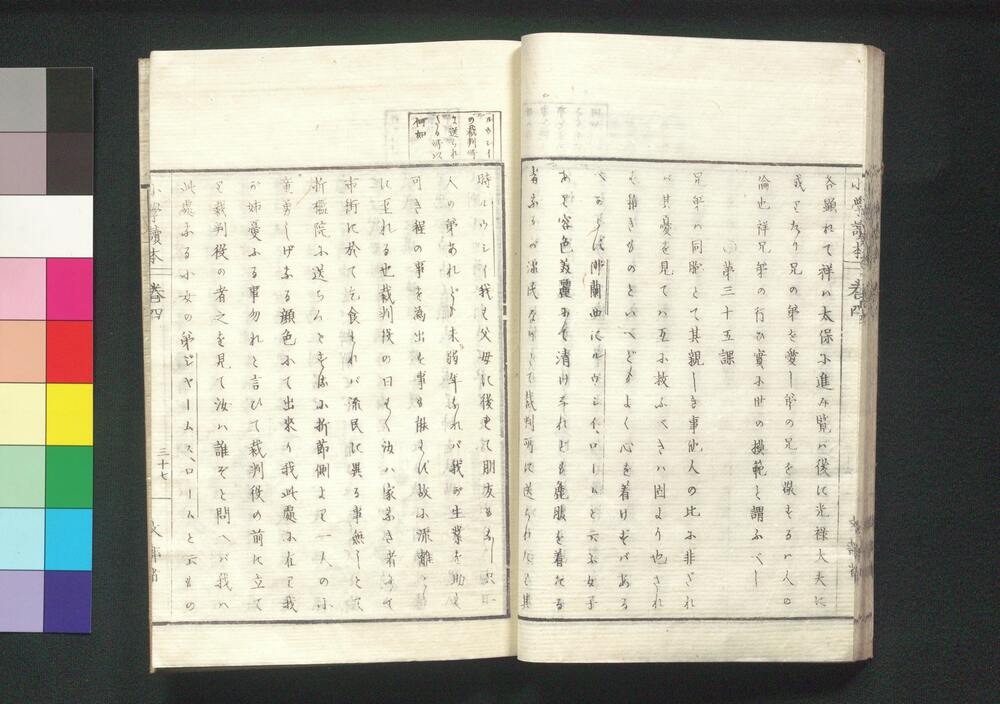 各顯れて祥ハ太保小進み覽ハ後に光祿大夫に
或と
兄の弟を愛し弟の兄を敬するハ人の
倫也祥兄弟の行ひ實小世の模範と謂ふべし
第三十五課
兄弟ハ同胞とて其親しき事他人の比小非ざれ
バ其憂を見てハ互小救ふべきハ固より也され
ど
ものといへども よく心を着けざれバある
佛蘭西にルウシイ、ロームと云ふ女子
あり容色美麗小して清けなれども麁服を着たる
者
流民
とて裁判所に送られたり其
ルウシイ
の裁判所
に送られ
たる所以
何如
時ルウシイ我も父母に後れて朋友もなし只一
人の弟あれども未弱年なれバ我が生業を助く
可き程の事を為出す事も能はず故小流離
に至れる也裁判役の曰もく汝ハ家なき者にて
市街に於て乞食すれバ流民に異る事無しとて
折檻院小送らんとする小折節側より一人の小
童勇しげなる顔色小て出來り我此處小在り我
が姉憂ふる事勿れと言ひて裁判役の前に立て
り裁判役の者之を見て汝ハ誰ぞと問へバ我ハ
此處なる小女の弟ジャームス、ロームと云もの
小學讀本
卷四
三十七
文部省
小學讀本
卷四
文部省